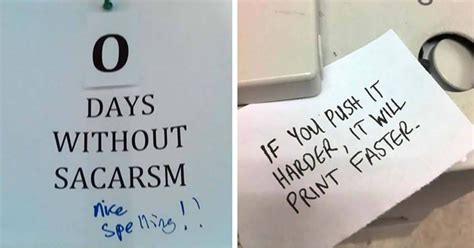 0
DAYS
WITHOUT
SACARSM
nice
spelling!!
IF YOU PUSH IT
HARDER, IT WILL
PRINT FASTER.